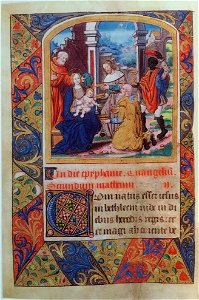 In die epyphanie. 
Secundum matheum
Cum natus esset iesus
in bethleem iude in di
ebus herodis regis: ec
ce magi ab oriente ve